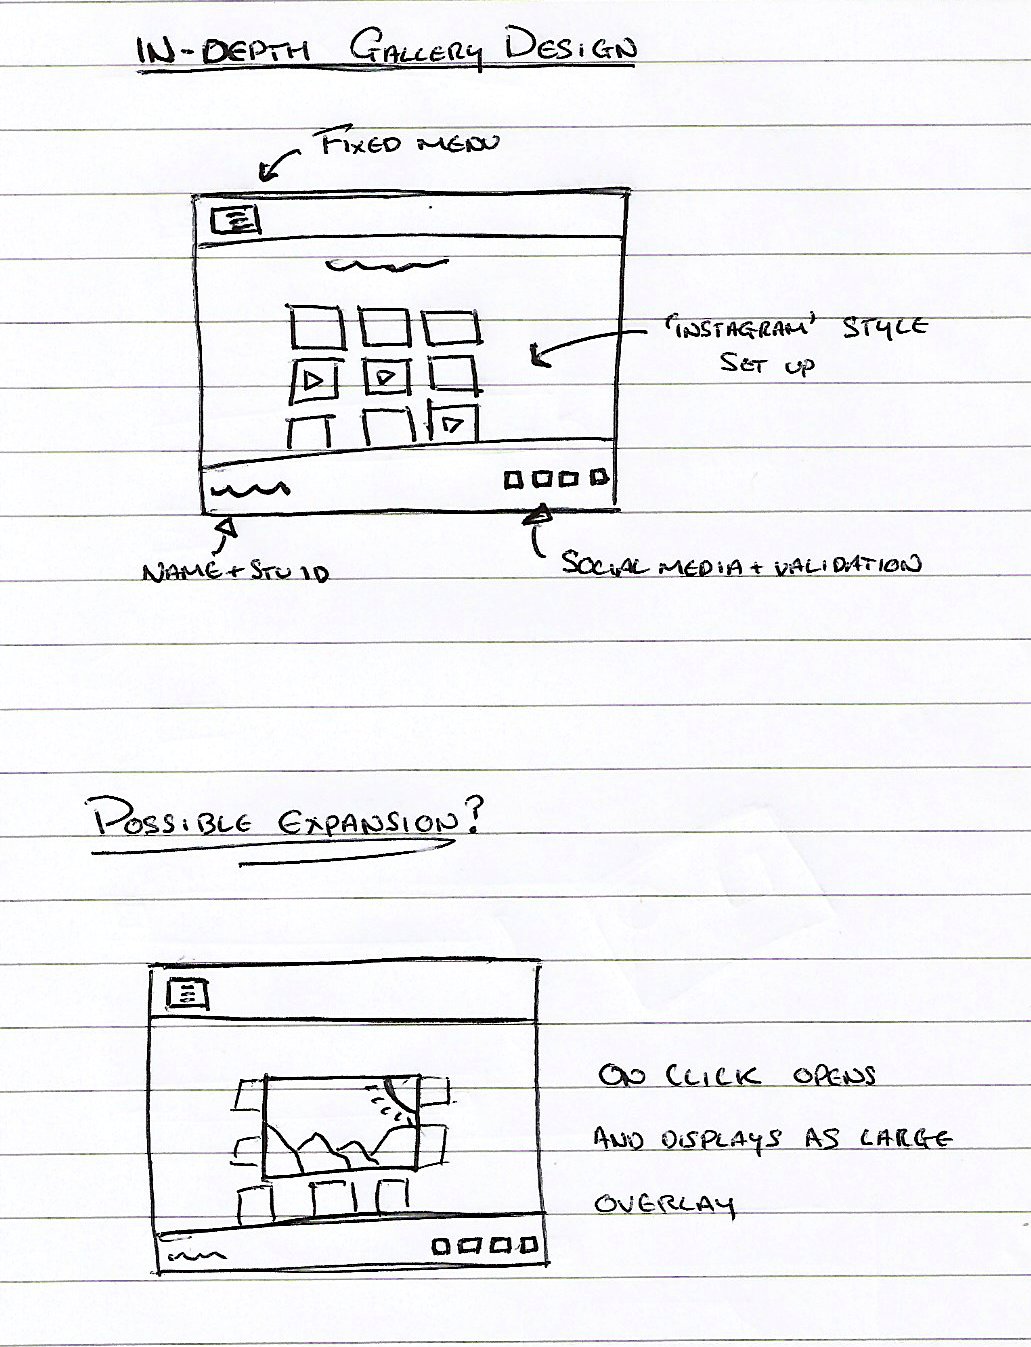 IN-DEPTH GALLERY DESIGN
FIXED MENU
'INSTAGRAM' STYLE
SET UP
NAME + STU ID
SOCIAL MEDIA + VALIDATION
POSSIBLE EXPANSION?
ON CLICK OPENS
AND DISPLAYS AS LARGE
OVERLAY